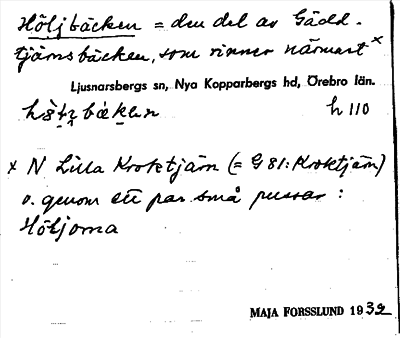 Höljbäcken = den del av Gädd-
tjärnsbäcken, som rinner närmast x
Ljusnarsbergs sn, Nya Kopparbergs hd, Örebro län.
h 110
x N Lilla Kroktjärn (= G 81: Kroktjärn)
o. genom ett par små pussar :
Höljorna
MAJA FORSSLUND 1932